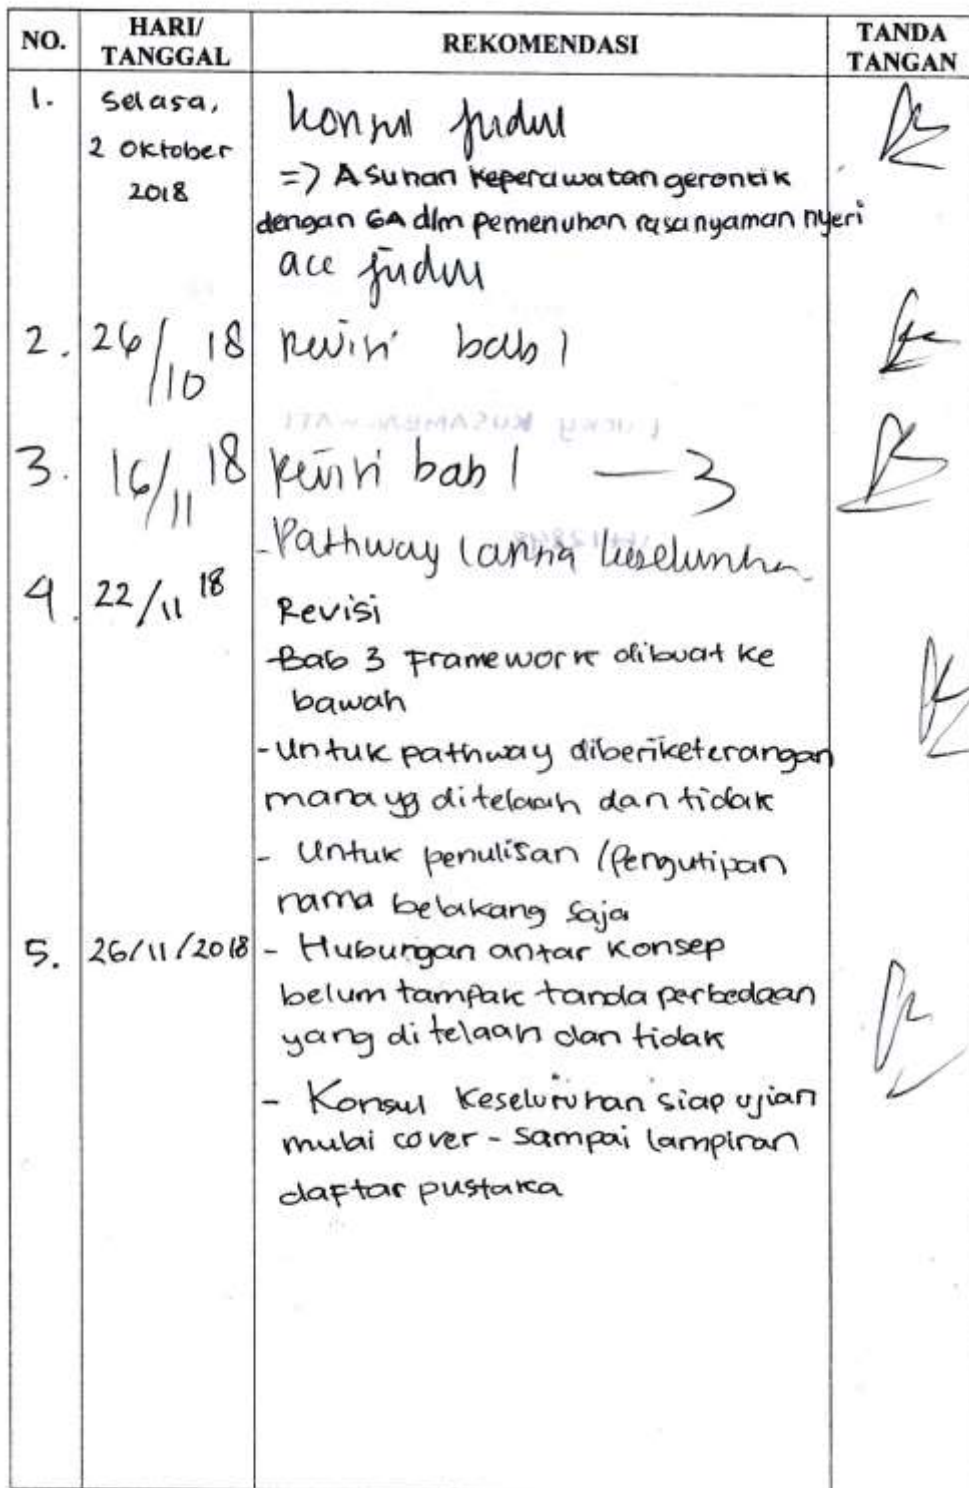 NO. HARI/ TANGGAL REKOMENDASI TANDA TANGAN
1. Selasa, 2 Oktober 2018
Konsul judul
=> Asuhan keperawatan gerontik
dengan GA dlm pemenuhan rasa nyaman nyeri
acc judul
2. 26/10 18 Revisi bab 1
3. 16/11 18 Revisi bab 1 — 3
- Pathway keseluruhan
4. 22/11 18 Revisi
- Bab 3 Framework dibuat ke
bawah
- Untuk pathway diberi keterangan
mana yg ditelaah dan tidak
- Untuk penulisan / Pengutipan
nama belakang saja
5. 26/11/2018 - Hubungan antar Konsep
belum tampak tanda perbedaan
yang ditelaah dan tidak
- Konsul Keseluruhan siap ujian
mulai cover - Sampai lampiran
daftar pustaka